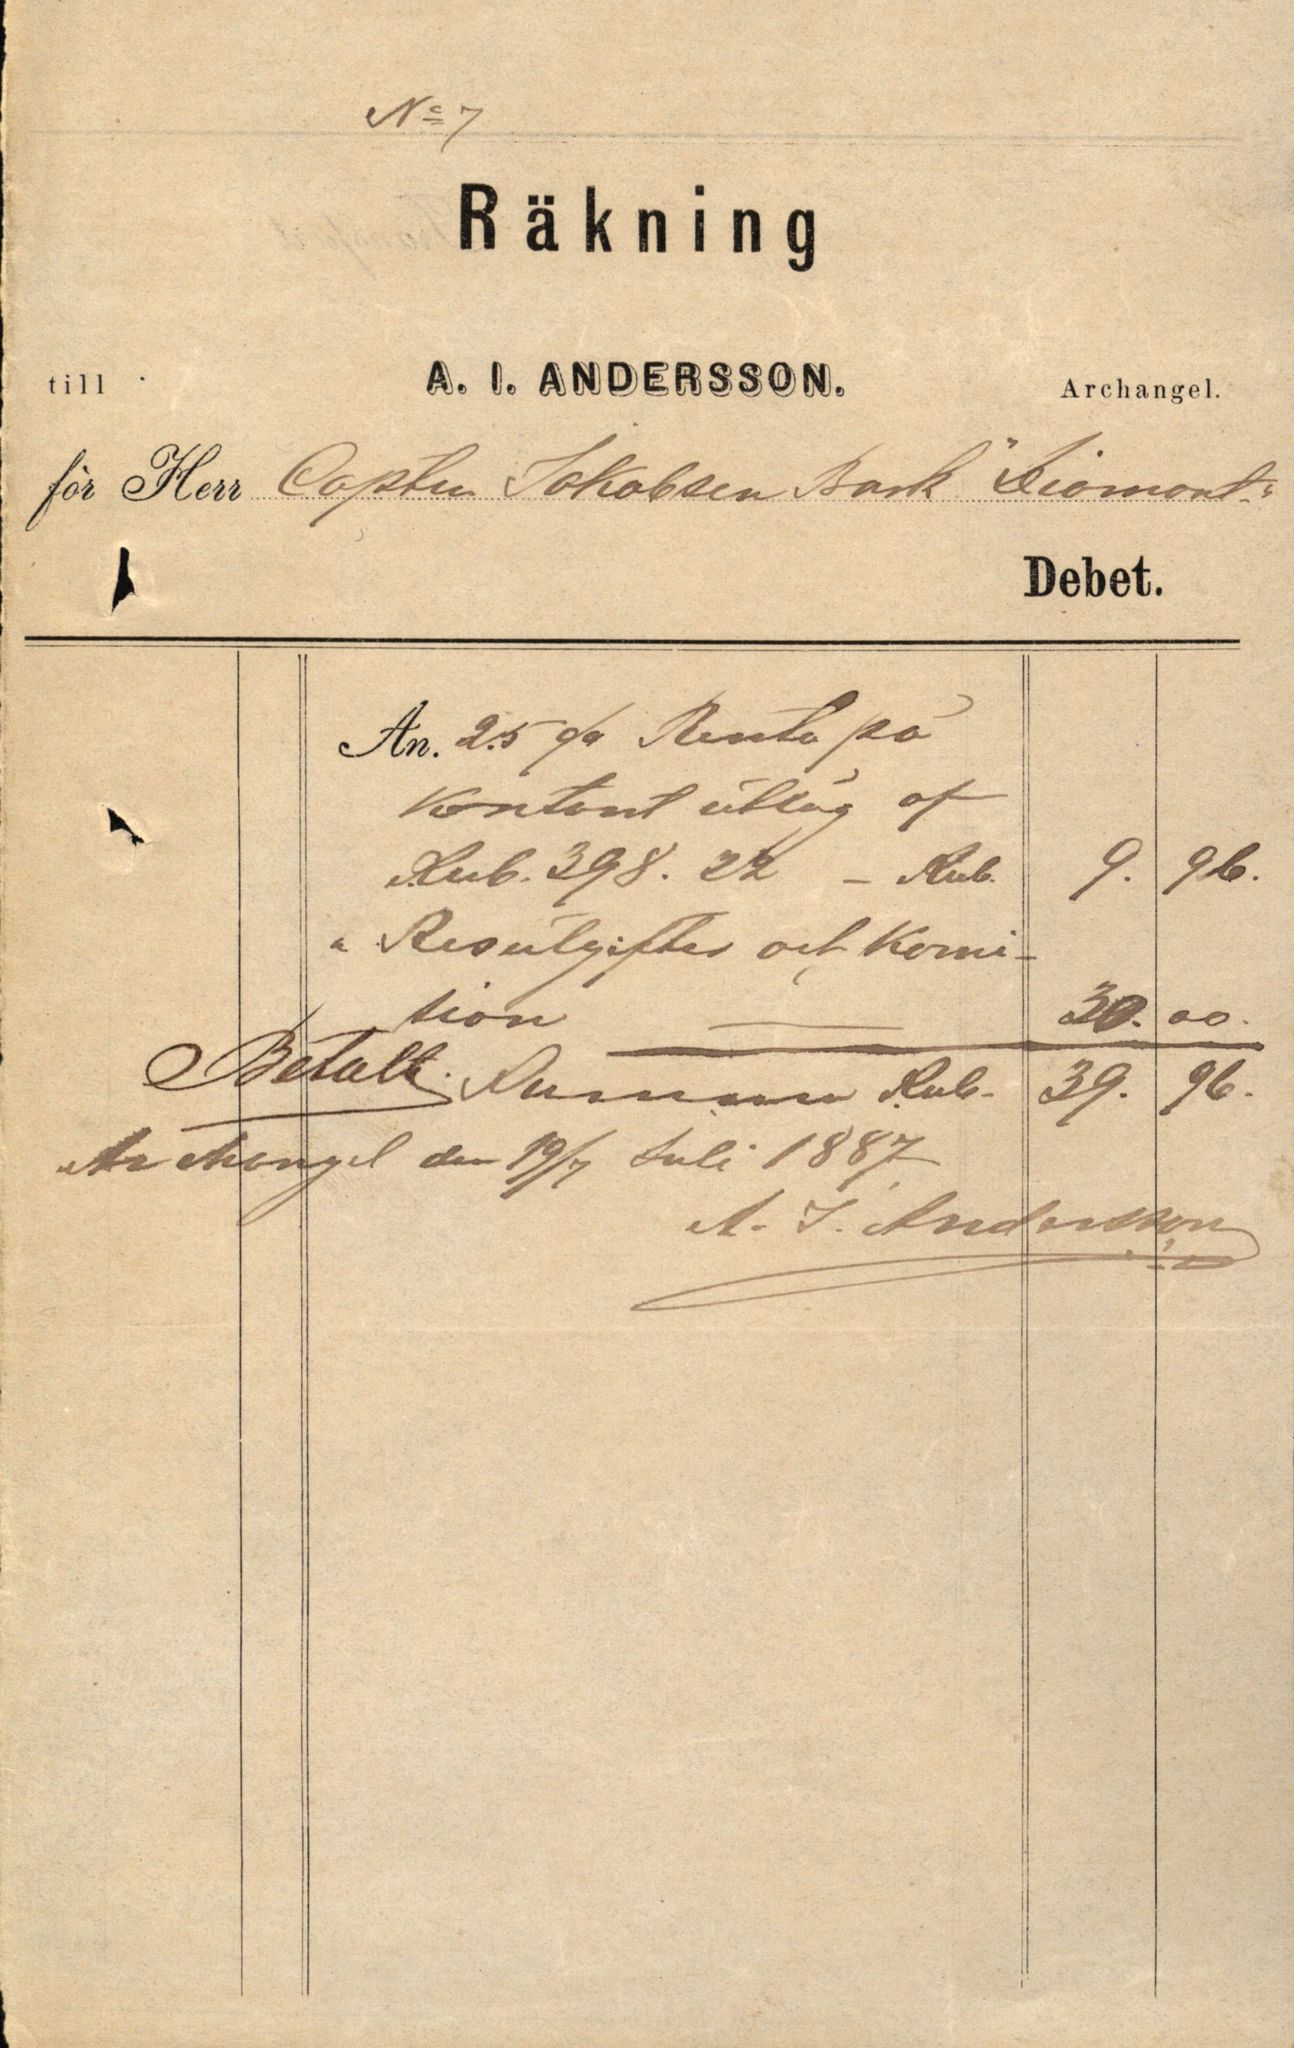 No 7
Räkning
till A. I. ANDERSSON. Archangel.
för Herr Capten Jakobsen Bark "Diamant"
Debet.
An. 2.5 % Renta på
Kontant utläg af
Rub. 398. 22 — Rub. 9. 96.
" Resutgifter och Komi-
tion — 30. 00.
Betalt. Summa Rub. 39. 96.
Archangel den 19/7 Juli 1887
A. I. Andersson